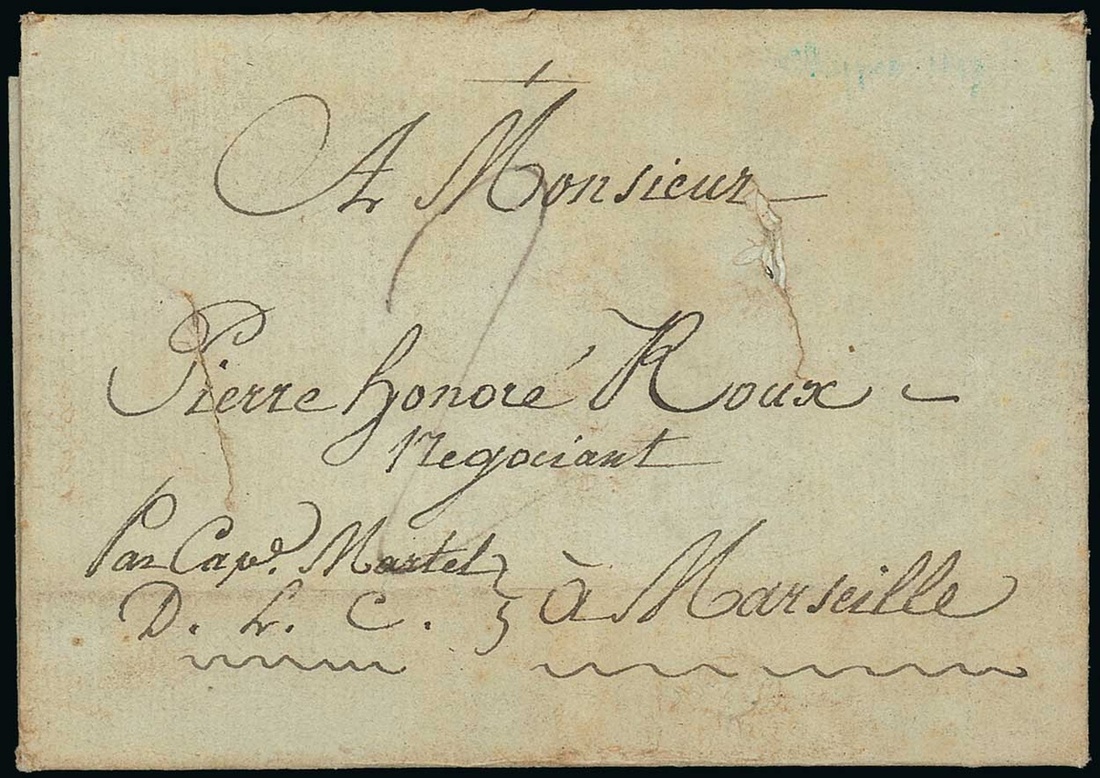 A Monsieur
Pierre honoré Roux
Negociant
Par Cap.e Martel
D. L. C. à Marseille